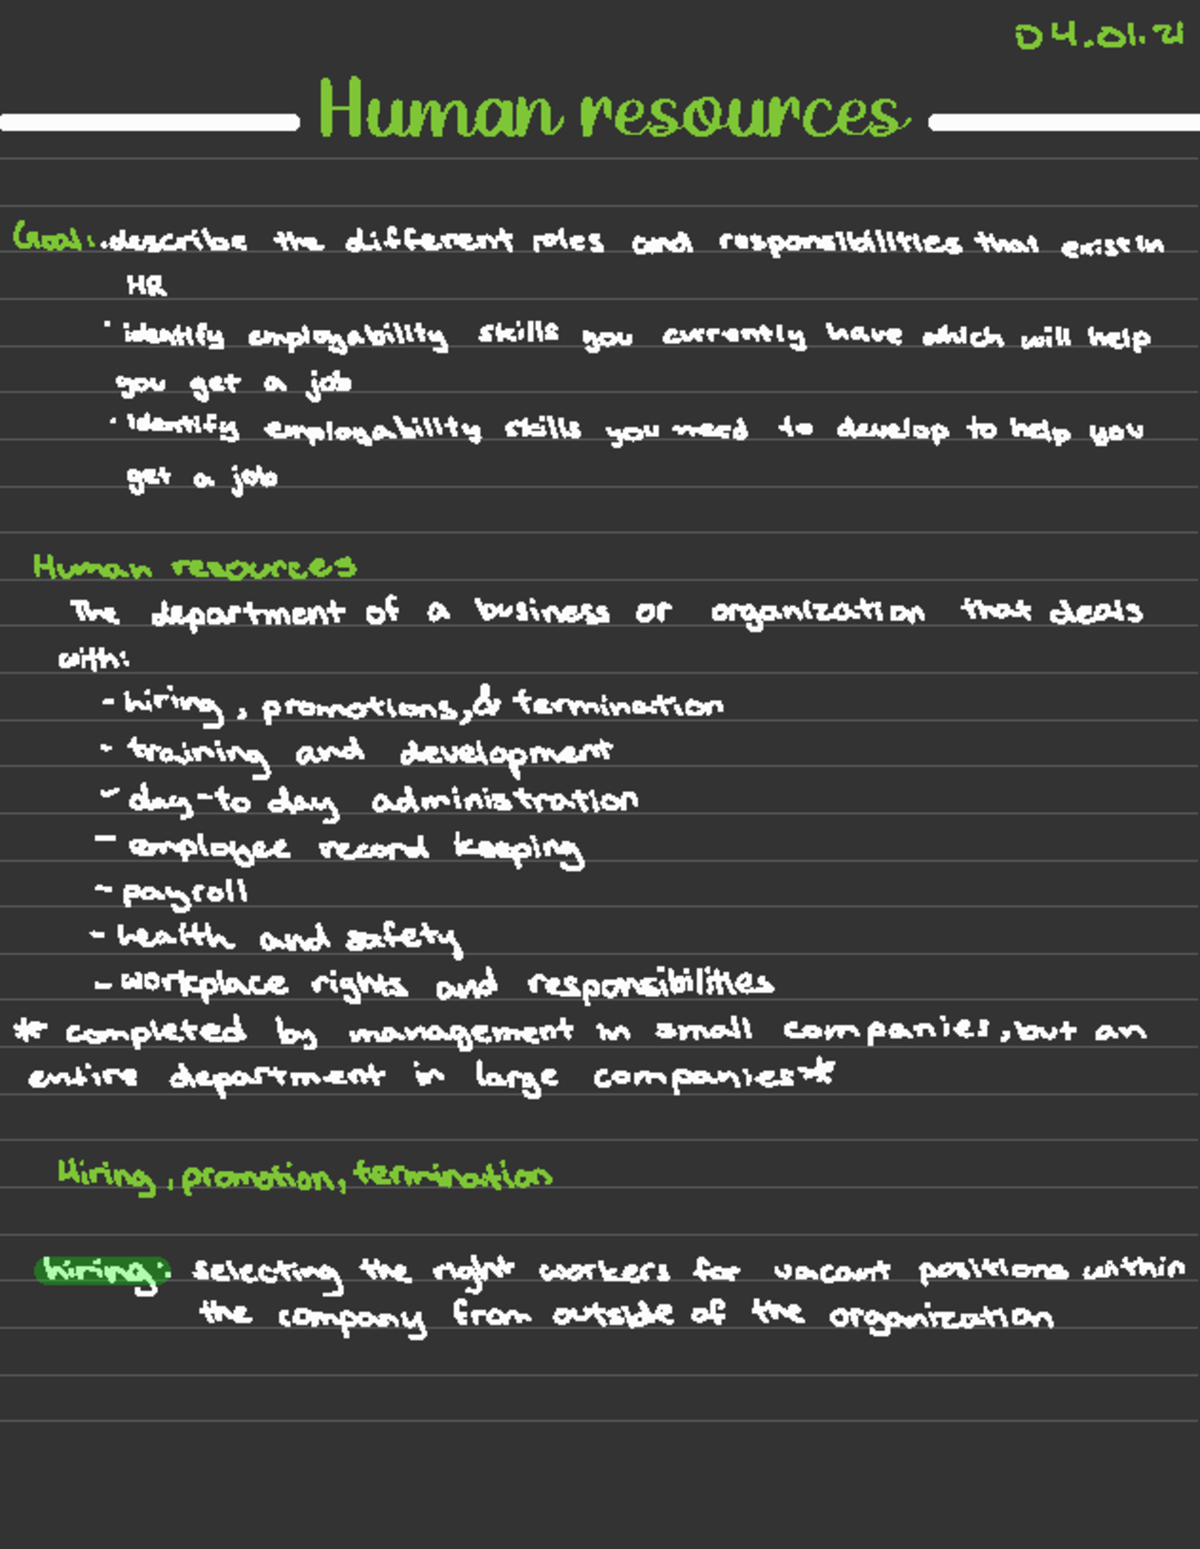 04.01.21
Human resources
Goal: · describe the different roles and responsibilities that exist in
HR
· identify employability skills you currently have which will help
you get a job
· identify employability skills you need to develop to help you
get a job
Human resources
The department of a business or organization that deals
with:
- hiring, promotions, & termination
- training and development
- day-to day administration
- employee record keeping
- payroll
- health and safety
- workplace rights and responsibilities
* completed by management in small companies, but an
entire department in large companies*
Hiring, promotion, termination
hiring: selecting the right workers for vacant positions within
the company from outside of the organization